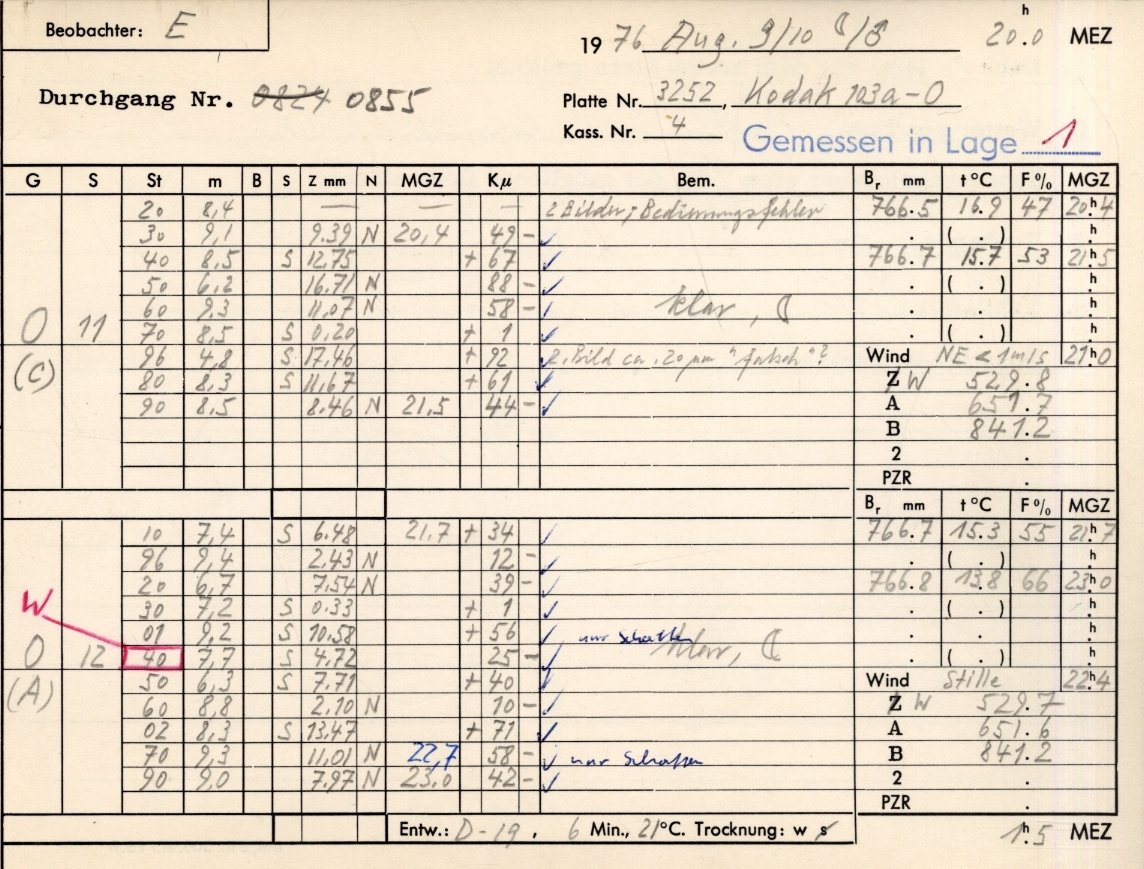 Beobachter: E
1976 Aug. 9/10 20.0 h MEZ
Durchgang Nr. 0824 0855
Platte Nr. 3252, Kodak 103a-O
Kass. Nr. 4
Gemessen in Lage 1
G S St m B S Z mm N MGZ Kμ Bem. Br mm t °C F % MGZ
20 8,4 — — — 2 Bilder, Bedienungsfehler 766.5 16.9 47 20h4
30 9,1 9.39 N 20,4 49 - ✓ . ( . ) h
40 8,5 S 12,75 + 67 ✓ 766.7 15.7 53 21h5
50 6,2 16.71 N 88 - ✓ . ( . ) h
60 9,3 11,07 N 58 - ✓ klar, ☾ . . h
O 11 70 8,5 S 0,20 + 1 ✓ . ( . ) h
96 4,8 S 17,46 + 92 2. Bild ca. 20 μm "falsch"? Wind NE < 1 m/s 21h0
(C) 80 8,3 S 11,67 + 61 ✓ Z W 529.8
90 8,5 8.46 N 21,5 44 - ✓ A 651.7
B 841.2
2 .
PZR .
Br mm t °C F % MGZ
10 7,4 S 6.48 21,7 + 34 ✓ 766.7 15.3 55 21h7
96 9,4 2.43 N 12 - ✓ . ( . ) h
20 6,7 7.54 N 39 - ✓ 766.8 13.8 66 23h0
W 30 7,2 S 0.33 + 1 ✓ . ( . ) h
01 9,2 S 10.58 + 56 ✓ nur Schatten . . h
O 12 40 7,7 S 4,72 25 - ✓ klar, ☾ . ( . ) h
(A) 50 6,3 S 7.71 + 40 ✓ Wind Stille 22h4
60 8,8 2.10 N 10 - ✓ Z W 529.7
02 8,3 S 13,47 + 71 ✓ A 651.6
70 9,3 11,01 N 22,7 58 - ✓ nur Schatten B 841.2
90 9,0 7.97 N 23.0 42 - ✓ 2 .
PZR .
Entw.: D-19, 6 Min., 21°C. Trocknung: w s 1h5 MEZ